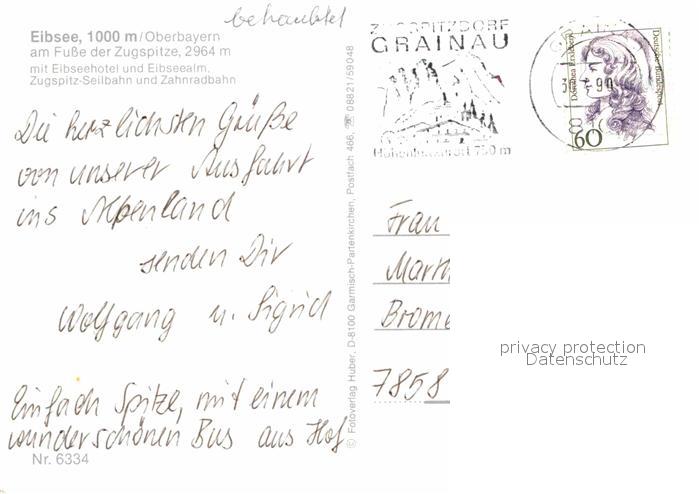 behaubtet
Eibsee, 1000 m/Oberbayern
am Fuße der Zugspitze, 2964 m
mit Eibseehotel und Eibseealm,
Zugspitz-Seilbahn und Zahnradbahn
Die herzlichsten Grüße
von unserer Ausfahrt
ins Alpenland
senden Dir
Wolfgang u. Sigrid
Einfach Spitze, mit einem
wunderschönen Bus aus Hof
Nr. 6334
© Fotoverlag Huber, D-8100 Garmisch-Partenkirchen, Postfach 466, ☏ 08821/59048
ZUGSPITZDORF
GRAINAU
Höhenluftkurort 750 m
90
60
Frau
Marth
Brome
7858
privacy protection
Datenschutz